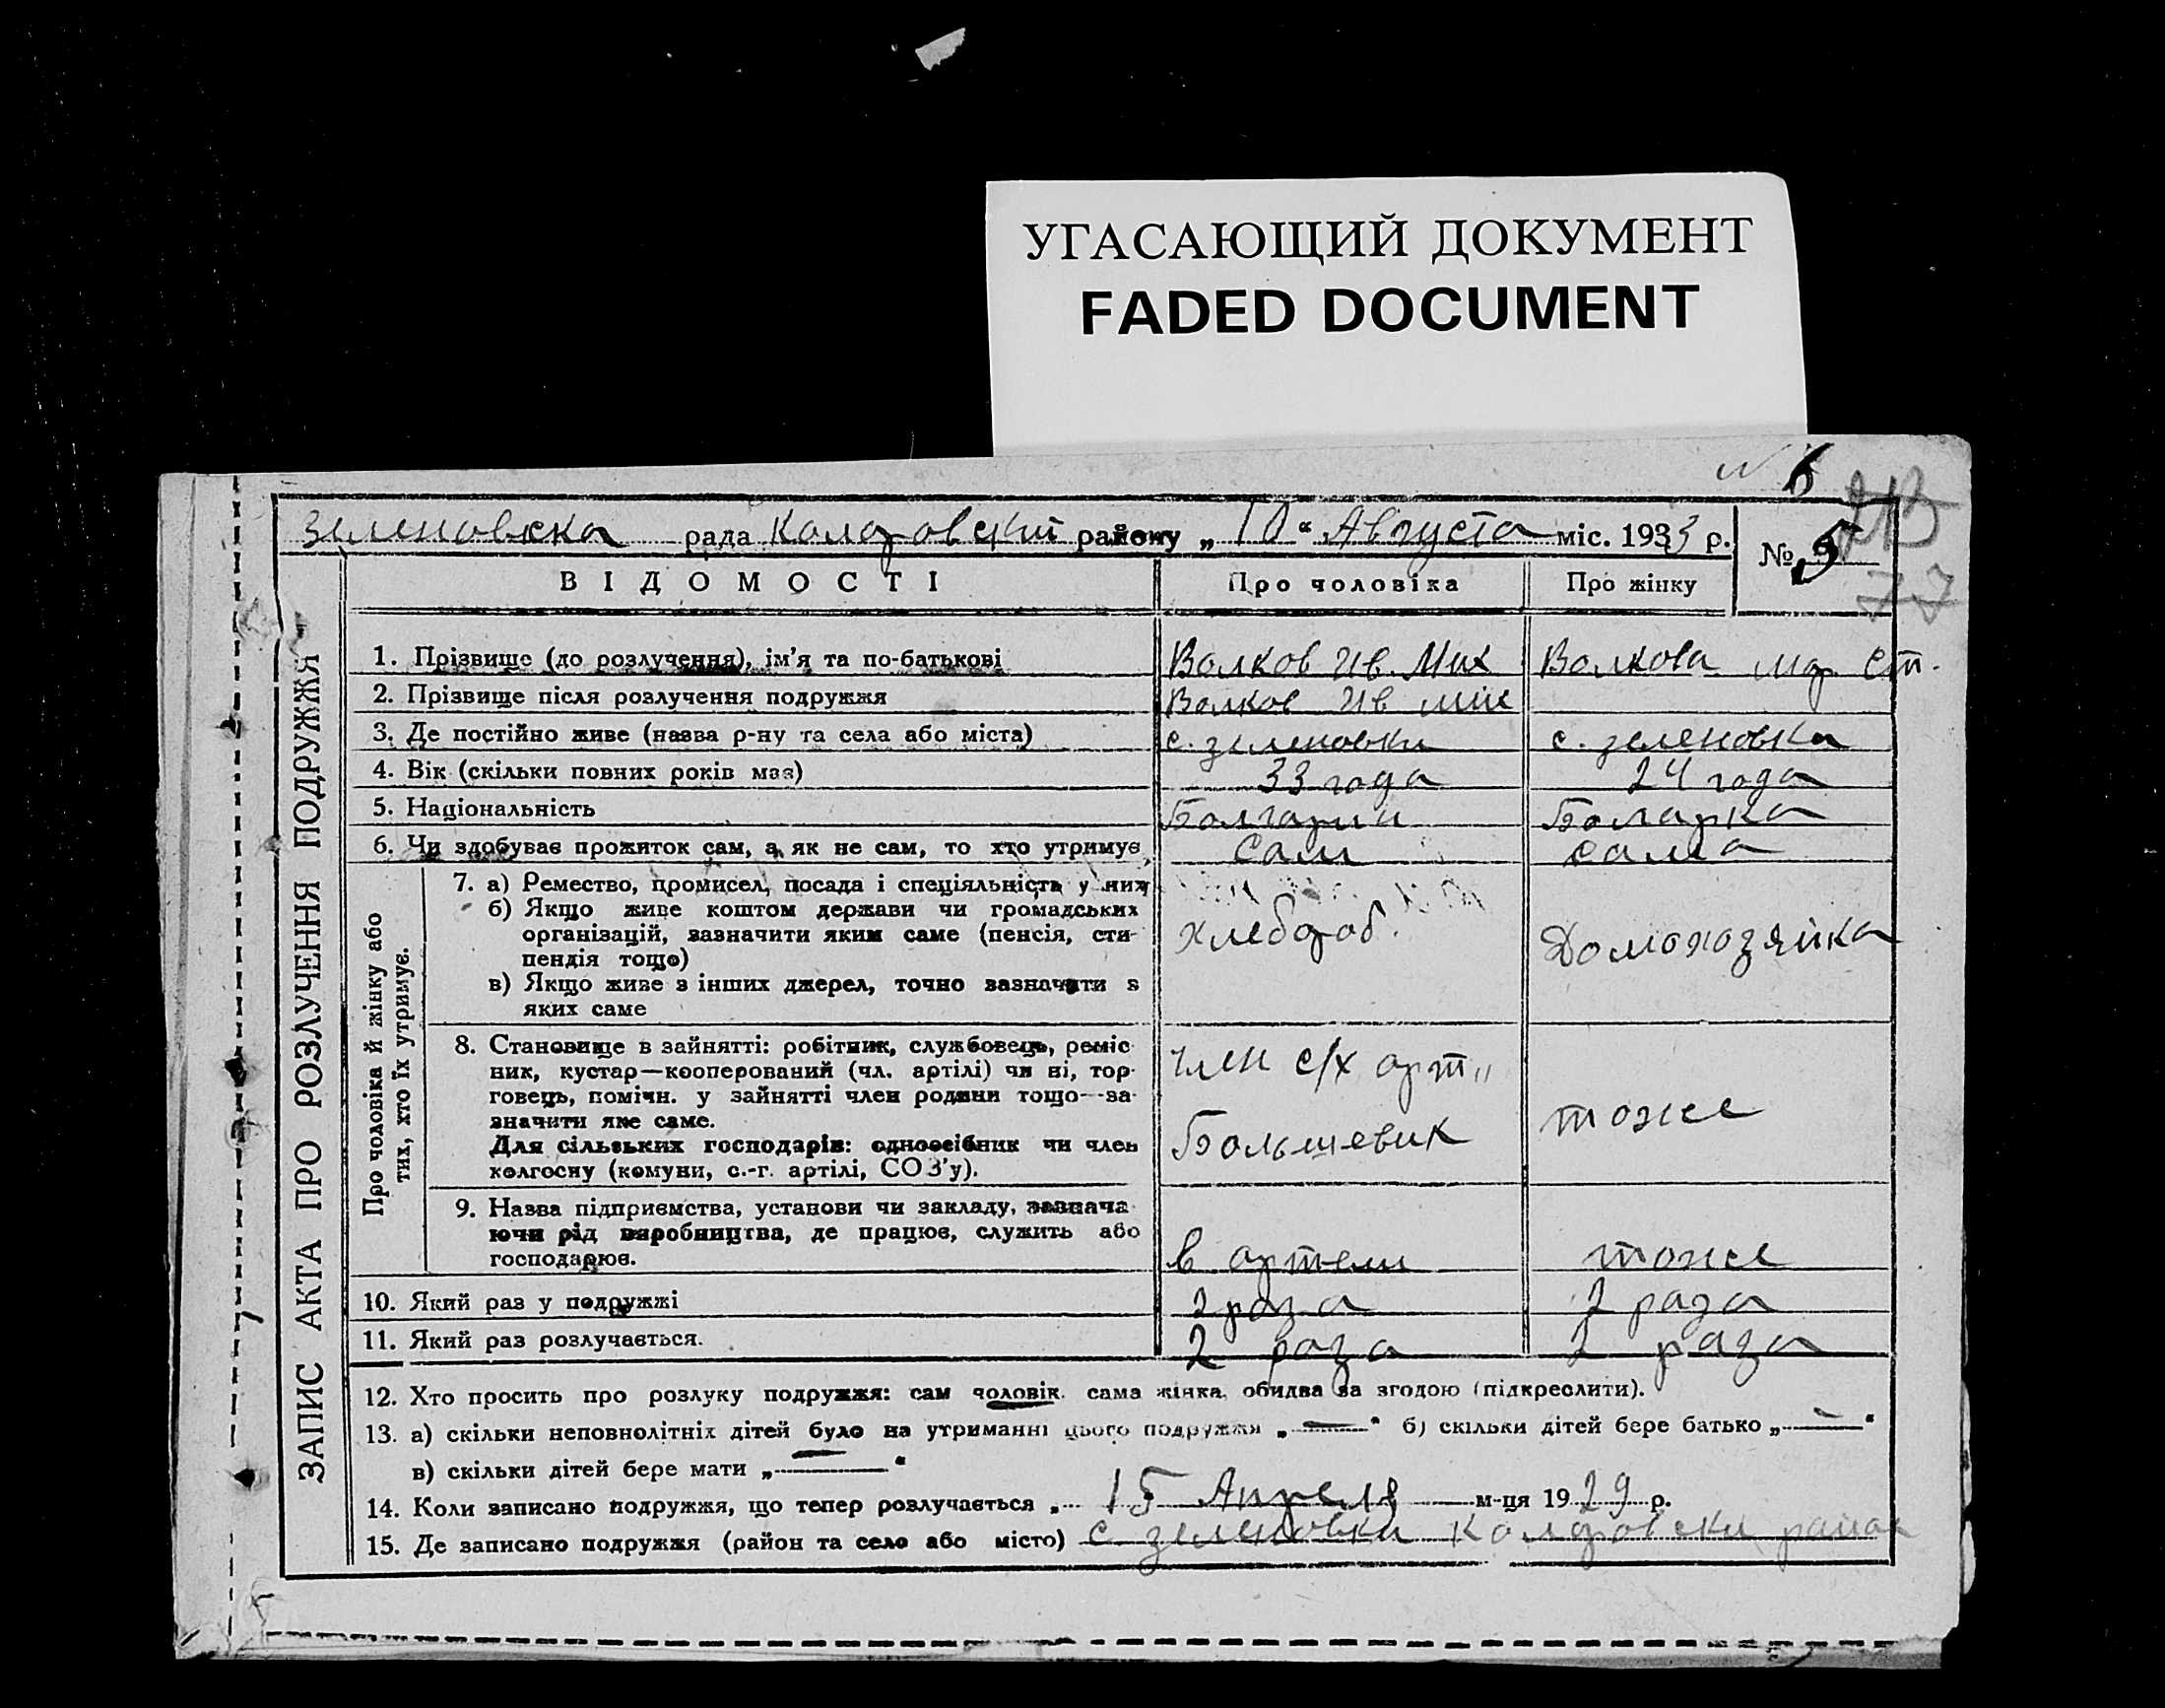 УГАСАЮЩИЙ ДОКУМЕНТ
FADED DOCUMENT
N 6
зеленовска рада Коларовский району „10“ Августа міс. 1933 р.
№ 5
77
ВІДОМОСТІ Про чоловіка Про жінку
ЗАПИС АКТА ПРО РОЗЛУЧЕННЯ ПОДРУЖЖЯ
1. Прізвище (до розлучення), ім'я та по-батькові Волков Ив. Мих Волкова мар. Ст.
2. Прізвище після розлучення подружжя Волков Ив мих
3. Де постійно живе (назва р-ну та села або міста) с. зеленовки с. зеленовка
4. Вік (скільки повних років має) 33 года 24 года
5. Національність Болгарин Боларка
6. Чи здобуває прожиток сам, а як не сам, то хто утримує Сам сама
Про чоловіка й жінку або
тих, хто їх утримує.
7. а) Ремество, промисел, посада і спеціяльність у них
б) Якщо живе коштом держави чи громадських
організацій, зазначити яким саме (пенсія, сти-
пендія тощо)
в) Якщо живе з інших джерел, точно зазначити з
яких саме
хлебороб. Домохозяйка
8. Становище в зайнятті: робітник, службовець, реміс-
ник, кустар—кооперований (чл. артілі) чи ні, тор-
говець, помічн. у зайнятті член родини тощо—за-
значити яке саме.
Для сільських господарів: одноосібник чи член
колгоспу (комуни, с.-г. артілі, СОЗ'у).
член с/х арт„
Большевик тоже
9. Назва підприємства, установи чи закладу, зазнача-
ючи рід виробництва, де працює, служить або
господарює.
в артели тоже
10. Який раз у подружжі 2 раза 2 раза
11. Який раз розлучається. 2 раза 2 раза
12. Хто просить про розлуку подружжя: сам чоловік, сама жінка, обидва за згодою (підкреслити).
13. а) скільки неповнолітніх дітей було на утриманні цього подружжя „—“ б) скільки дітей бере батько „—“
в) скільки дітей бере мати „—“
14. Коли записано подружжя, що тепер розлучається „15 Апреля м-ця 1929 р.
15. Де записано подружжя (район та село або місто) с зеленовки Коларовски район